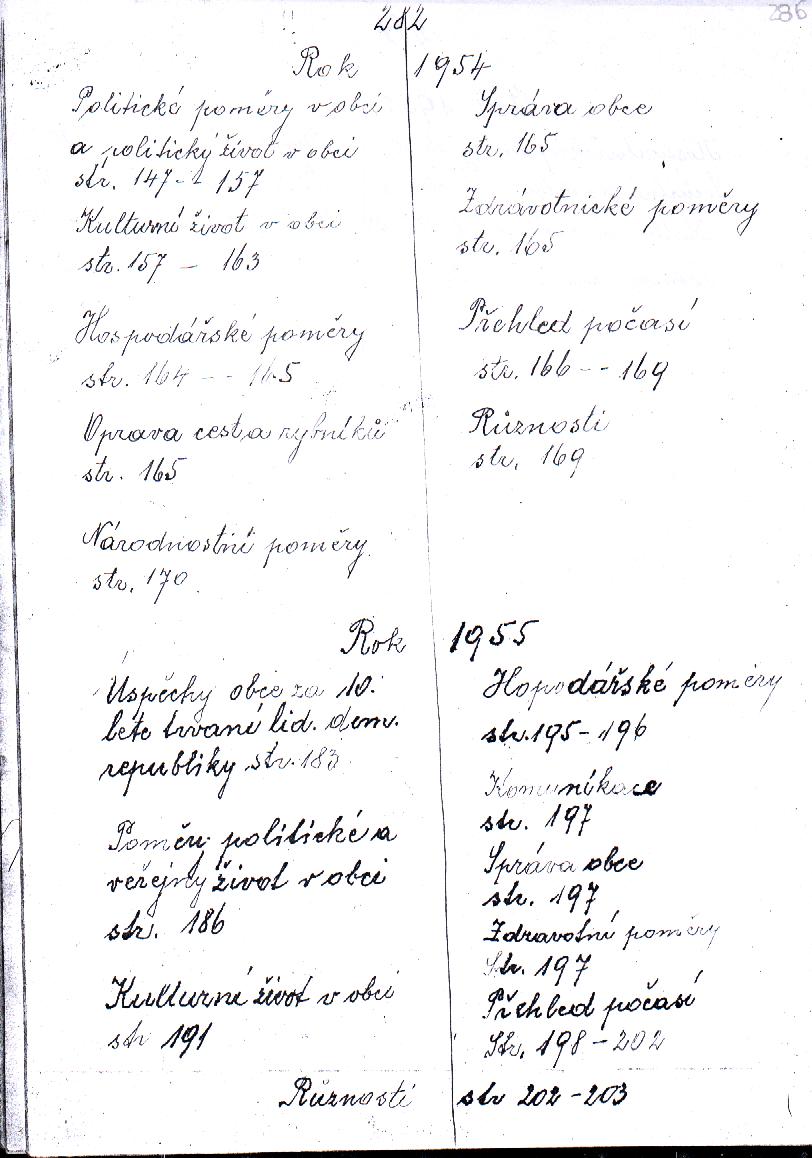 282
286
Rok 1954
Politické poměry v obci
a politický život v obci
str. 147 - 157
Kulturní život v obci
str. 157 - 163
Hospodářské poměry
str. 164 - - 165
Oprava cest a rybníků
str. 165
Národnostní poměry
str. 170
Správa obce
str. 165
Zdrávotnické poměry
str. 165
Přehled počasí
str. 166 - - 169
Různosti
str. 169
Rok 1955
Úspěchy obce za 10.
léte trvaní lid. dem.
republiky str. 183
Poměry politické a
veřejný život v obci
str. 186
Kulturní život v obci
str 191
Hopodářské poměry
str. 195 - 196
Komunikace
str. 197
Správa obce
str. 197
Zdravotní poměry
Str. 197
Přehled počasí
Str. 198 - 202
Různosti str 202 - 203